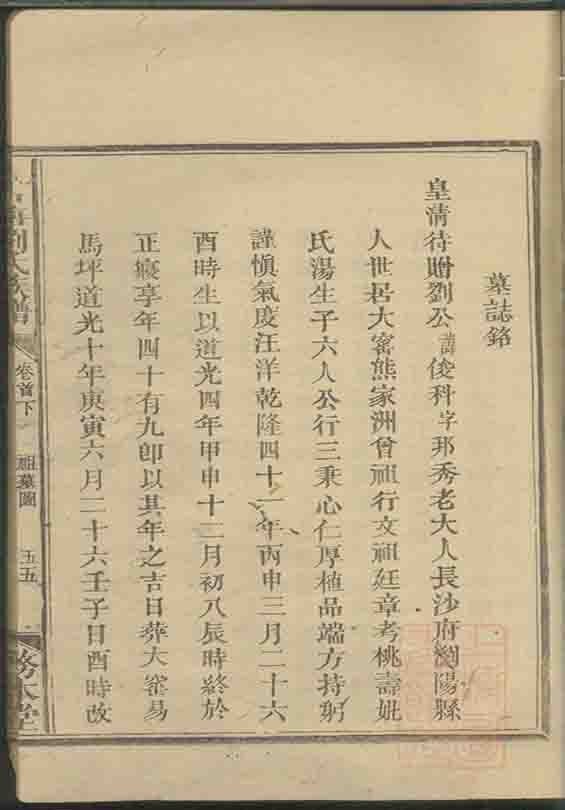 墓誌銘
皇清待贈劉公諱俊科字邦秀老大人長沙府瀏陽縣
人世居大窰熊家洲曾祖行文祖廷章考桃壽妣
氏湯生子六人公行三秉心仁厚植品端方持躬
謹慎氣度汪洋乾隆四十一年丙申三月二十六
酉時生以道光四年甲申十二月初八辰時終於
正寢享年四十有九卽以其年之吉日葬大窰易
馬坪道光十年庚寅六月二十六壬子日酉時改
劉氏族譜 卷首下 祖墓圖 五五 務本堂